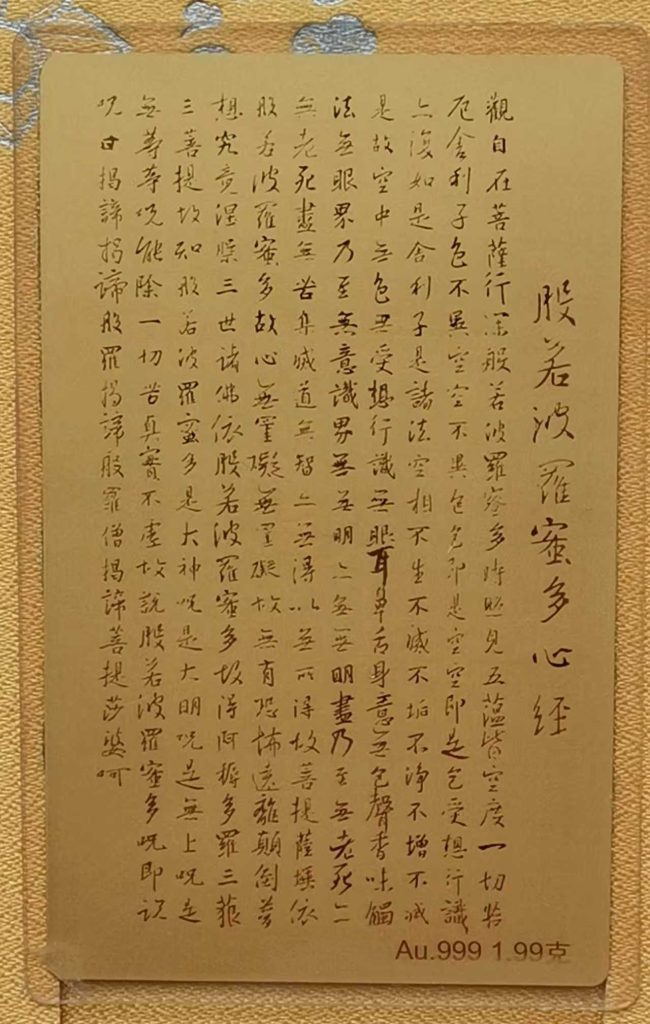 般若波羅蜜多心経
觀自在菩薩行深般若波羅蜜多時照見五蘊皆空度一切苦
厄舍利子色不異空空不異色色即是空空即是色受想行識
亦復如是舍利子是諸法空相不生不滅不垢不淨不增不減
是故空中無色無受想行識無眼耳鼻舌身意無色聲香味觸
法無眼界乃至無意識界無無明亦無無明盡乃至無老死亦
無老死盡無苦集滅道無智亦無得以無所得故菩提薩埵依
般若波羅蜜多故心無罣礙無罣礙故無有恐怖遠離顛倒夢
想究竟涅槃三世諸佛依般若波羅蜜多故得阿耨多羅三藐
三菩提故知般若波羅蜜多是大神咒是大明咒是無上咒是
無等等咒能除一切苦真實不虛故說般若波羅蜜多咒即説
咒曰揭諦揭諦般羅揭諦般羅僧揭諦菩提莎婆呵
Au.999 1.99克